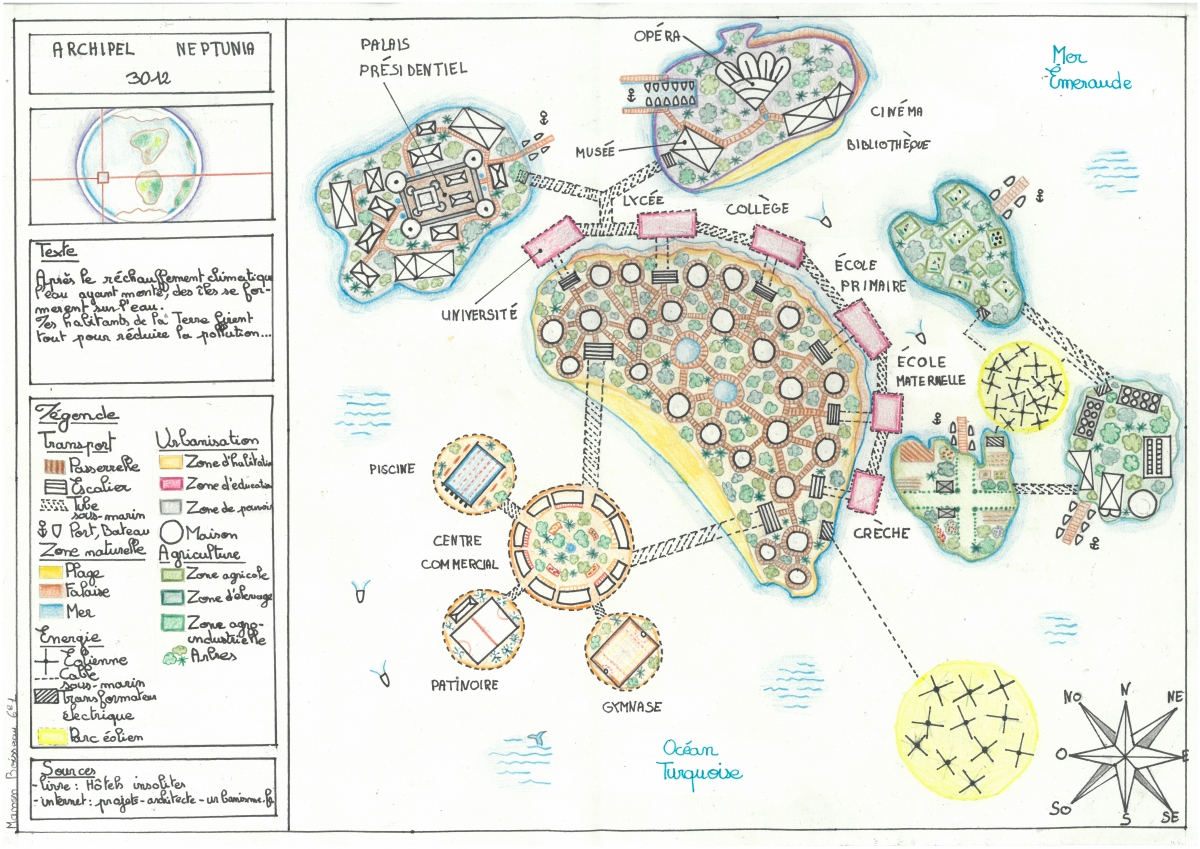 ARCHIPEL NEPTUNIA
3012
Texte
Après le réchauffement climatique
l'eau ayant monté, des îles se for-
mèrent sur l'eau.
Les habitants de la Terre firent
tout pour réduire la pollution...
Légende
Transport
Passerelle
Escalier
Tube
sous-marin
Port, Bateau
Zone naturelle
Plage
Falaise
Mer
Energie
Éolienne
Cable
sous-marin
Transformateur
électrique
Parc éolien
Urbanisation
Zone d'habitation
Zone d'éducation
Zone de pouvoir
Maison
Agriculture
Zone agricole
Zone d'élevage
Zone agro-
industrielle
Arbres
Sources
- livre : Hôtels insolites
- internet : projets-architecte-urbanisme.fr
PALAIS
PRÉSIDENTIEL
OPÉRA
MUSÉE
CINÉMA
BIBLIOTHÈQUE
Mer
Émeraude
LYCÉE
COLLÈGE
UNIVERSITÉ
ÉCOLE
PRIMAIRE
ÉCOLE
MATERNELLE
CRÈCHE
PISCINE
CENTRE
COMMERCIAL
PATINOIRE
GYMNASE
Océan
Turquoise
NO
N
NE
O
E
SO
S
SE